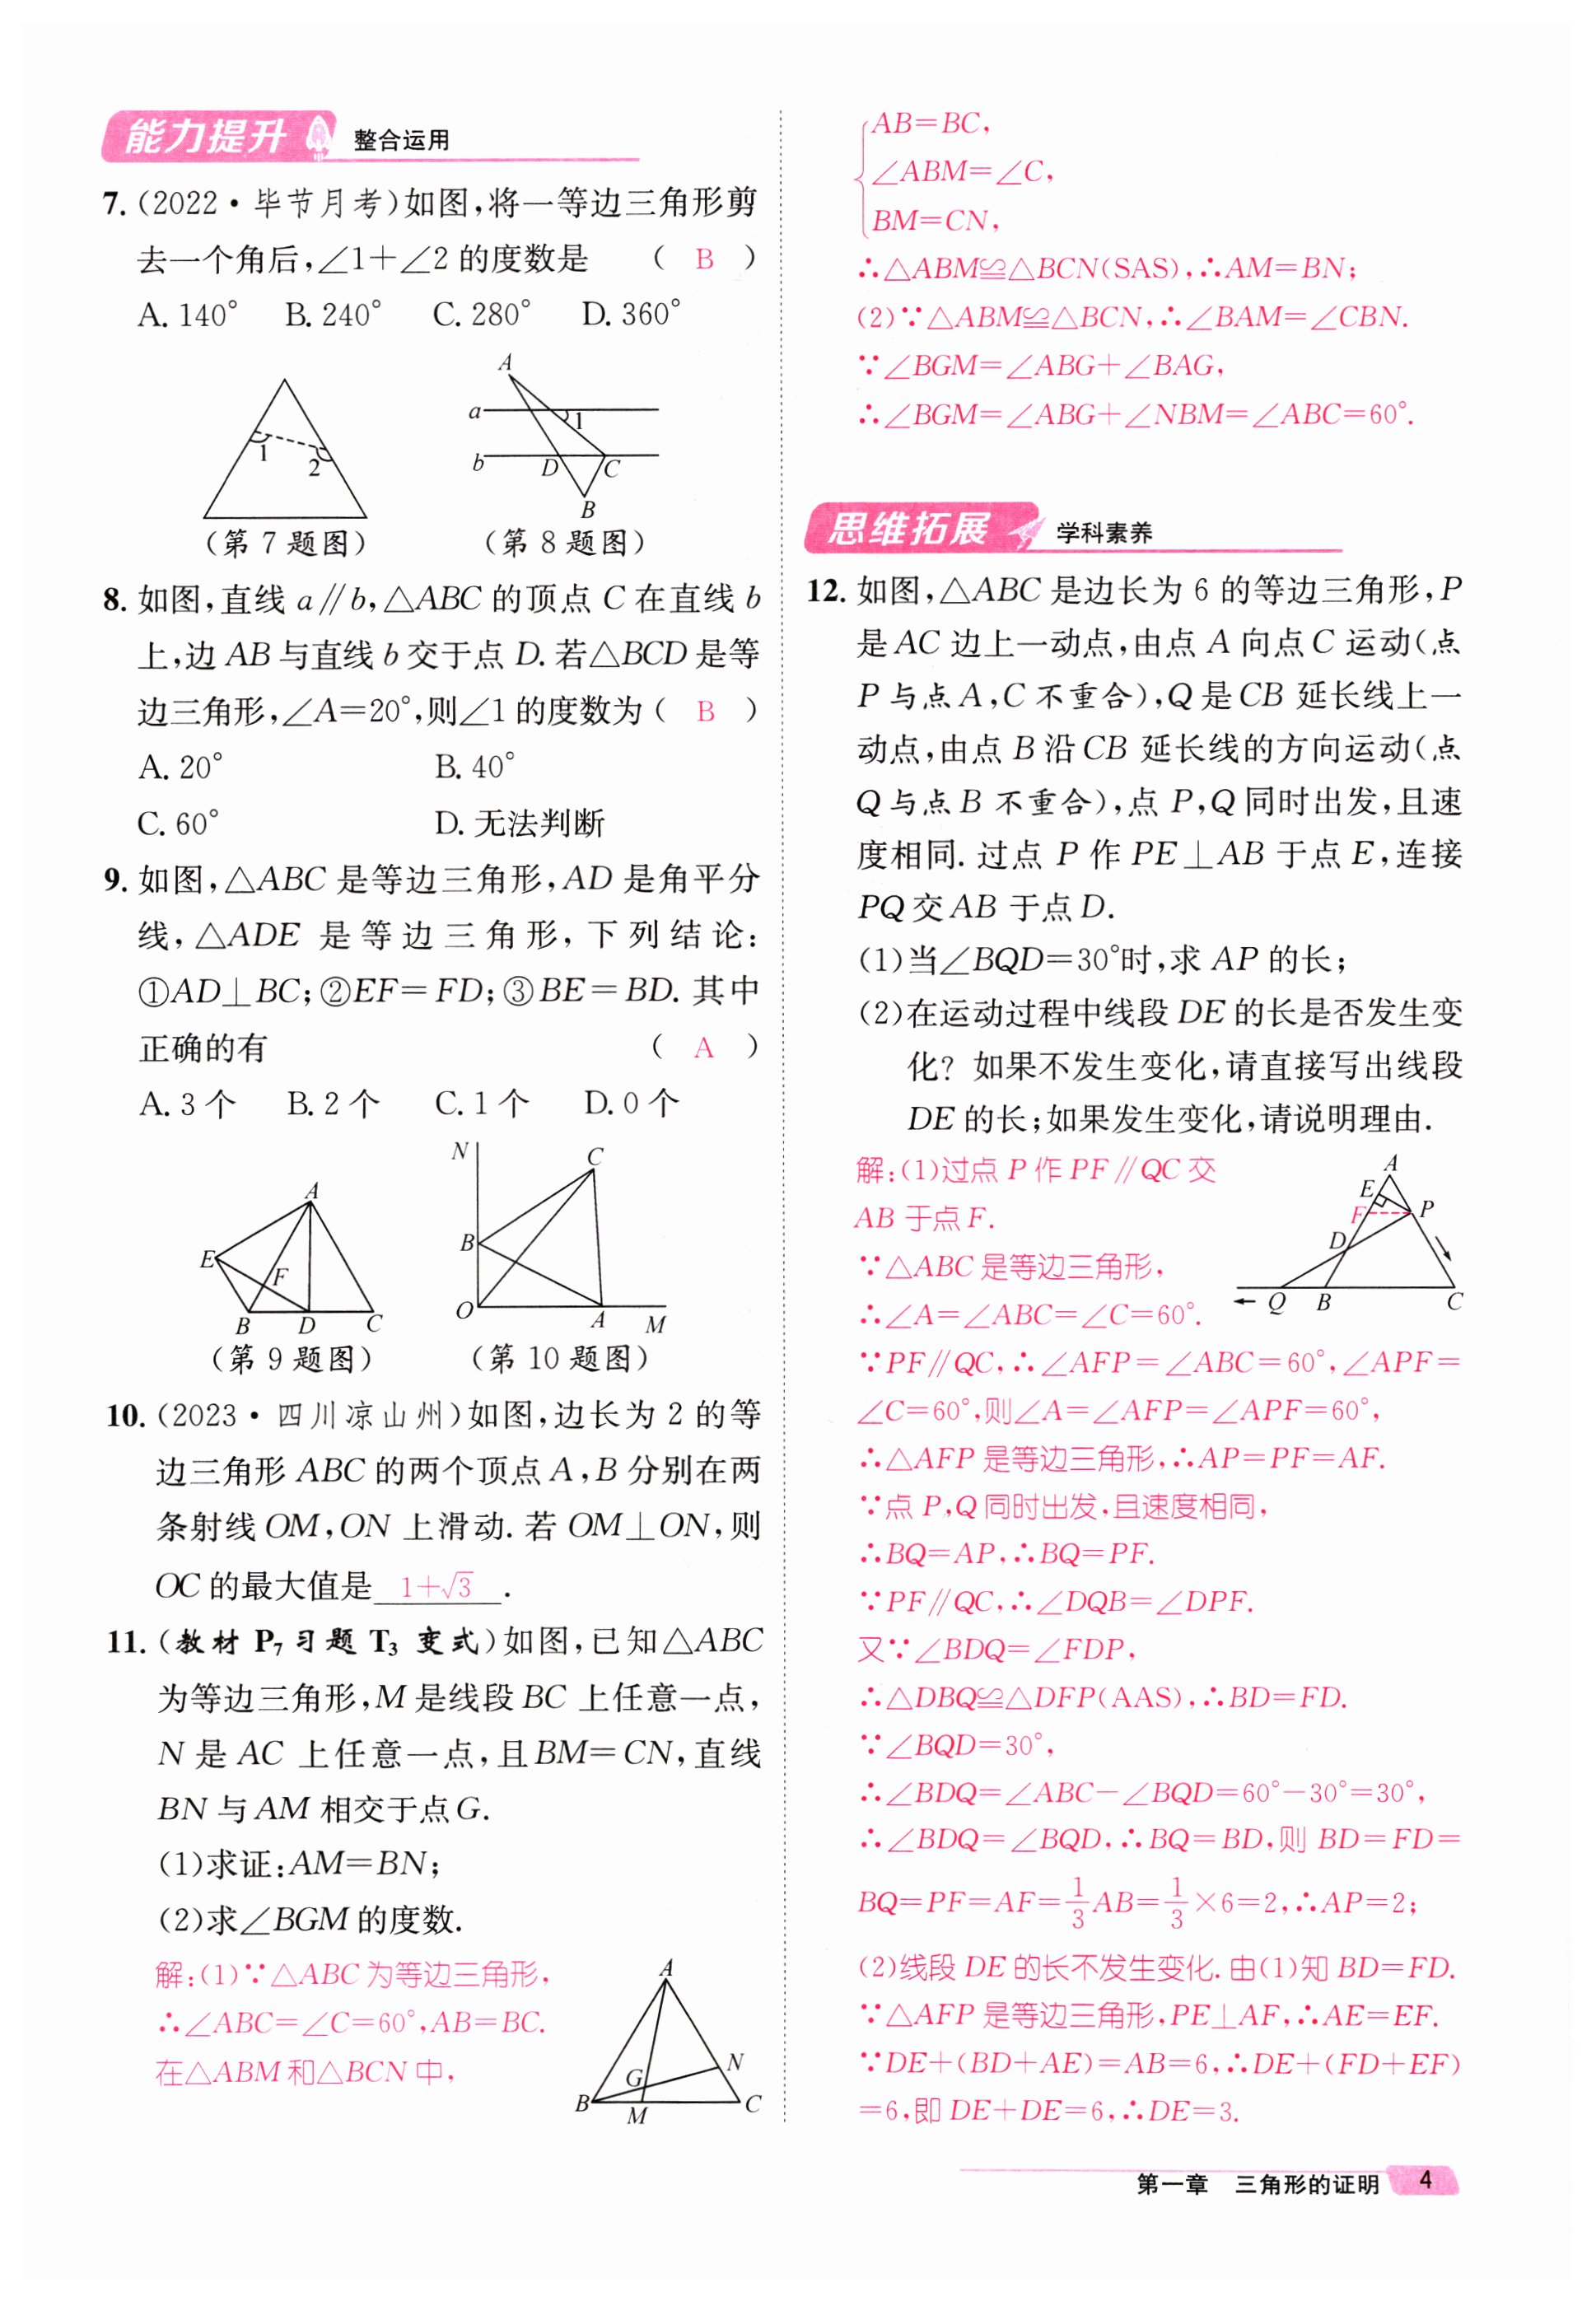 能力提升 整合运用
7.(2022·毕节月考)如图,将一等边三角形剪
去一个角后,∠1+∠2的度数是 ( B )
A. 140° B. 240° C. 280° D. 360°
1
2
(第7题图)
A
a
1
b
D
C
B
(第8题图)
8. 如图,直线a∥b,△ABC的顶点C在直线b
上,边AB与直线b交于点D. 若△BCD是等
边三角形,∠A=20°,则∠1的度数为( B )
A. 20° B. 40°
C. 60° D. 无法判断
9. 如图,△ABC是等边三角形,AD是角平分
线,△ADE是等边三角形,下列结论:
①AD⊥BC;②EF=FD;③BE=BD. 其中
正确的有 ( A )
A. 3个 B. 2个 C. 1个 D. 0个
A
E
F
B D C
(第9题图)
N
C
B
O
A M
(第10题图)
10.(2023·四川凉山州)如图,边长为2的等
边三角形ABC的两个顶点A,B分别在两
条射线OM,ON上滑动. 若OM⊥ON,则
OC的最大值是 1+√3 .
11.(教材P₇习题T₃变式)如图,已知△ABC
为等边三角形,M是线段BC上任意一点,
N是AC上任意一点,且BM=CN,直线
BN与AM相交于点G.
(1)求证:AM=BN;
(2)求∠BGM的度数.
解:(1)∵△ABC为等边三角形,
∴∠ABC=∠C=60°,AB=BC.
在△ABM和△BCN中,
A
N
G
B
M
C
AB=BC,
∠ABM=∠C,
BM=CN,
∴△ABM≌△BCN(SAS),∴AM=BN;
(2)∵△ABM≌△BCN,∴∠BAM=∠CBN.
∵∠BGM=∠ABG+∠BAG,
∴∠BGM=∠ABG+∠NBM=∠ABC=60°.
思维拓展 学科素养
12. 如图,△ABC是边长为6的等边三角形,P
是AC边上一动点,由点A向点C运动(点
P与点A,C不重合),Q是CB延长线上一
动点,由点B沿CB延长线的方向运动(点
Q与点B不重合),点P,Q同时出发,且速
度相同. 过点P作PE⊥AB于点E,连接
PQ交AB于点D.
(1)当∠BQD=30°时,求AP的长;
(2)在运动过程中线段DE的长是否发生变
化? 如果不发生变化,请直接写出线段
DE的长;如果发生变化,请说明理由.
解:(1)过点P作PF∥QC交
AB于点F.
∵△ABC是等边三角形,
∴∠A=∠ABC=∠C=60°.
A
E
F
P
D
Q B C
∵PF∥QC,∴∠AFP=∠ABC=60°,∠APF=
∠C=60°,则∠A=∠AFP=∠APF=60°,
∴△AFP是等边三角形,∴AP=PF=AF.
∵点P,Q同时出发,且速度相同,
∴BQ=AP,∴BQ=PF.
∵PF∥QC,∴∠DQB=∠DPF.
又∵∠BDQ=∠FDP,
∴△DBQ≌△DFP(AAS),∴BD=FD.
∵∠BQD=30°,
∴∠BDQ=∠ABC-∠BQD=60°-30°=30°,
∴∠BDQ=∠BQD,∴BQ=BD,则BD=FD=
BQ=PF=AF=1/3AB=1/3×6=2,∴AP=2;
(2)线段DE的长不发生变化. 由(1)知BD=FD.
∵△AFP是等边三角形,PE⊥AF,∴AE=EF.
∵DE+(BD+AE)=AB=6,∴DE+(FD+EF)
=6,即DE+DE=6,∴DE=3.
第一章 三角形的证明 4